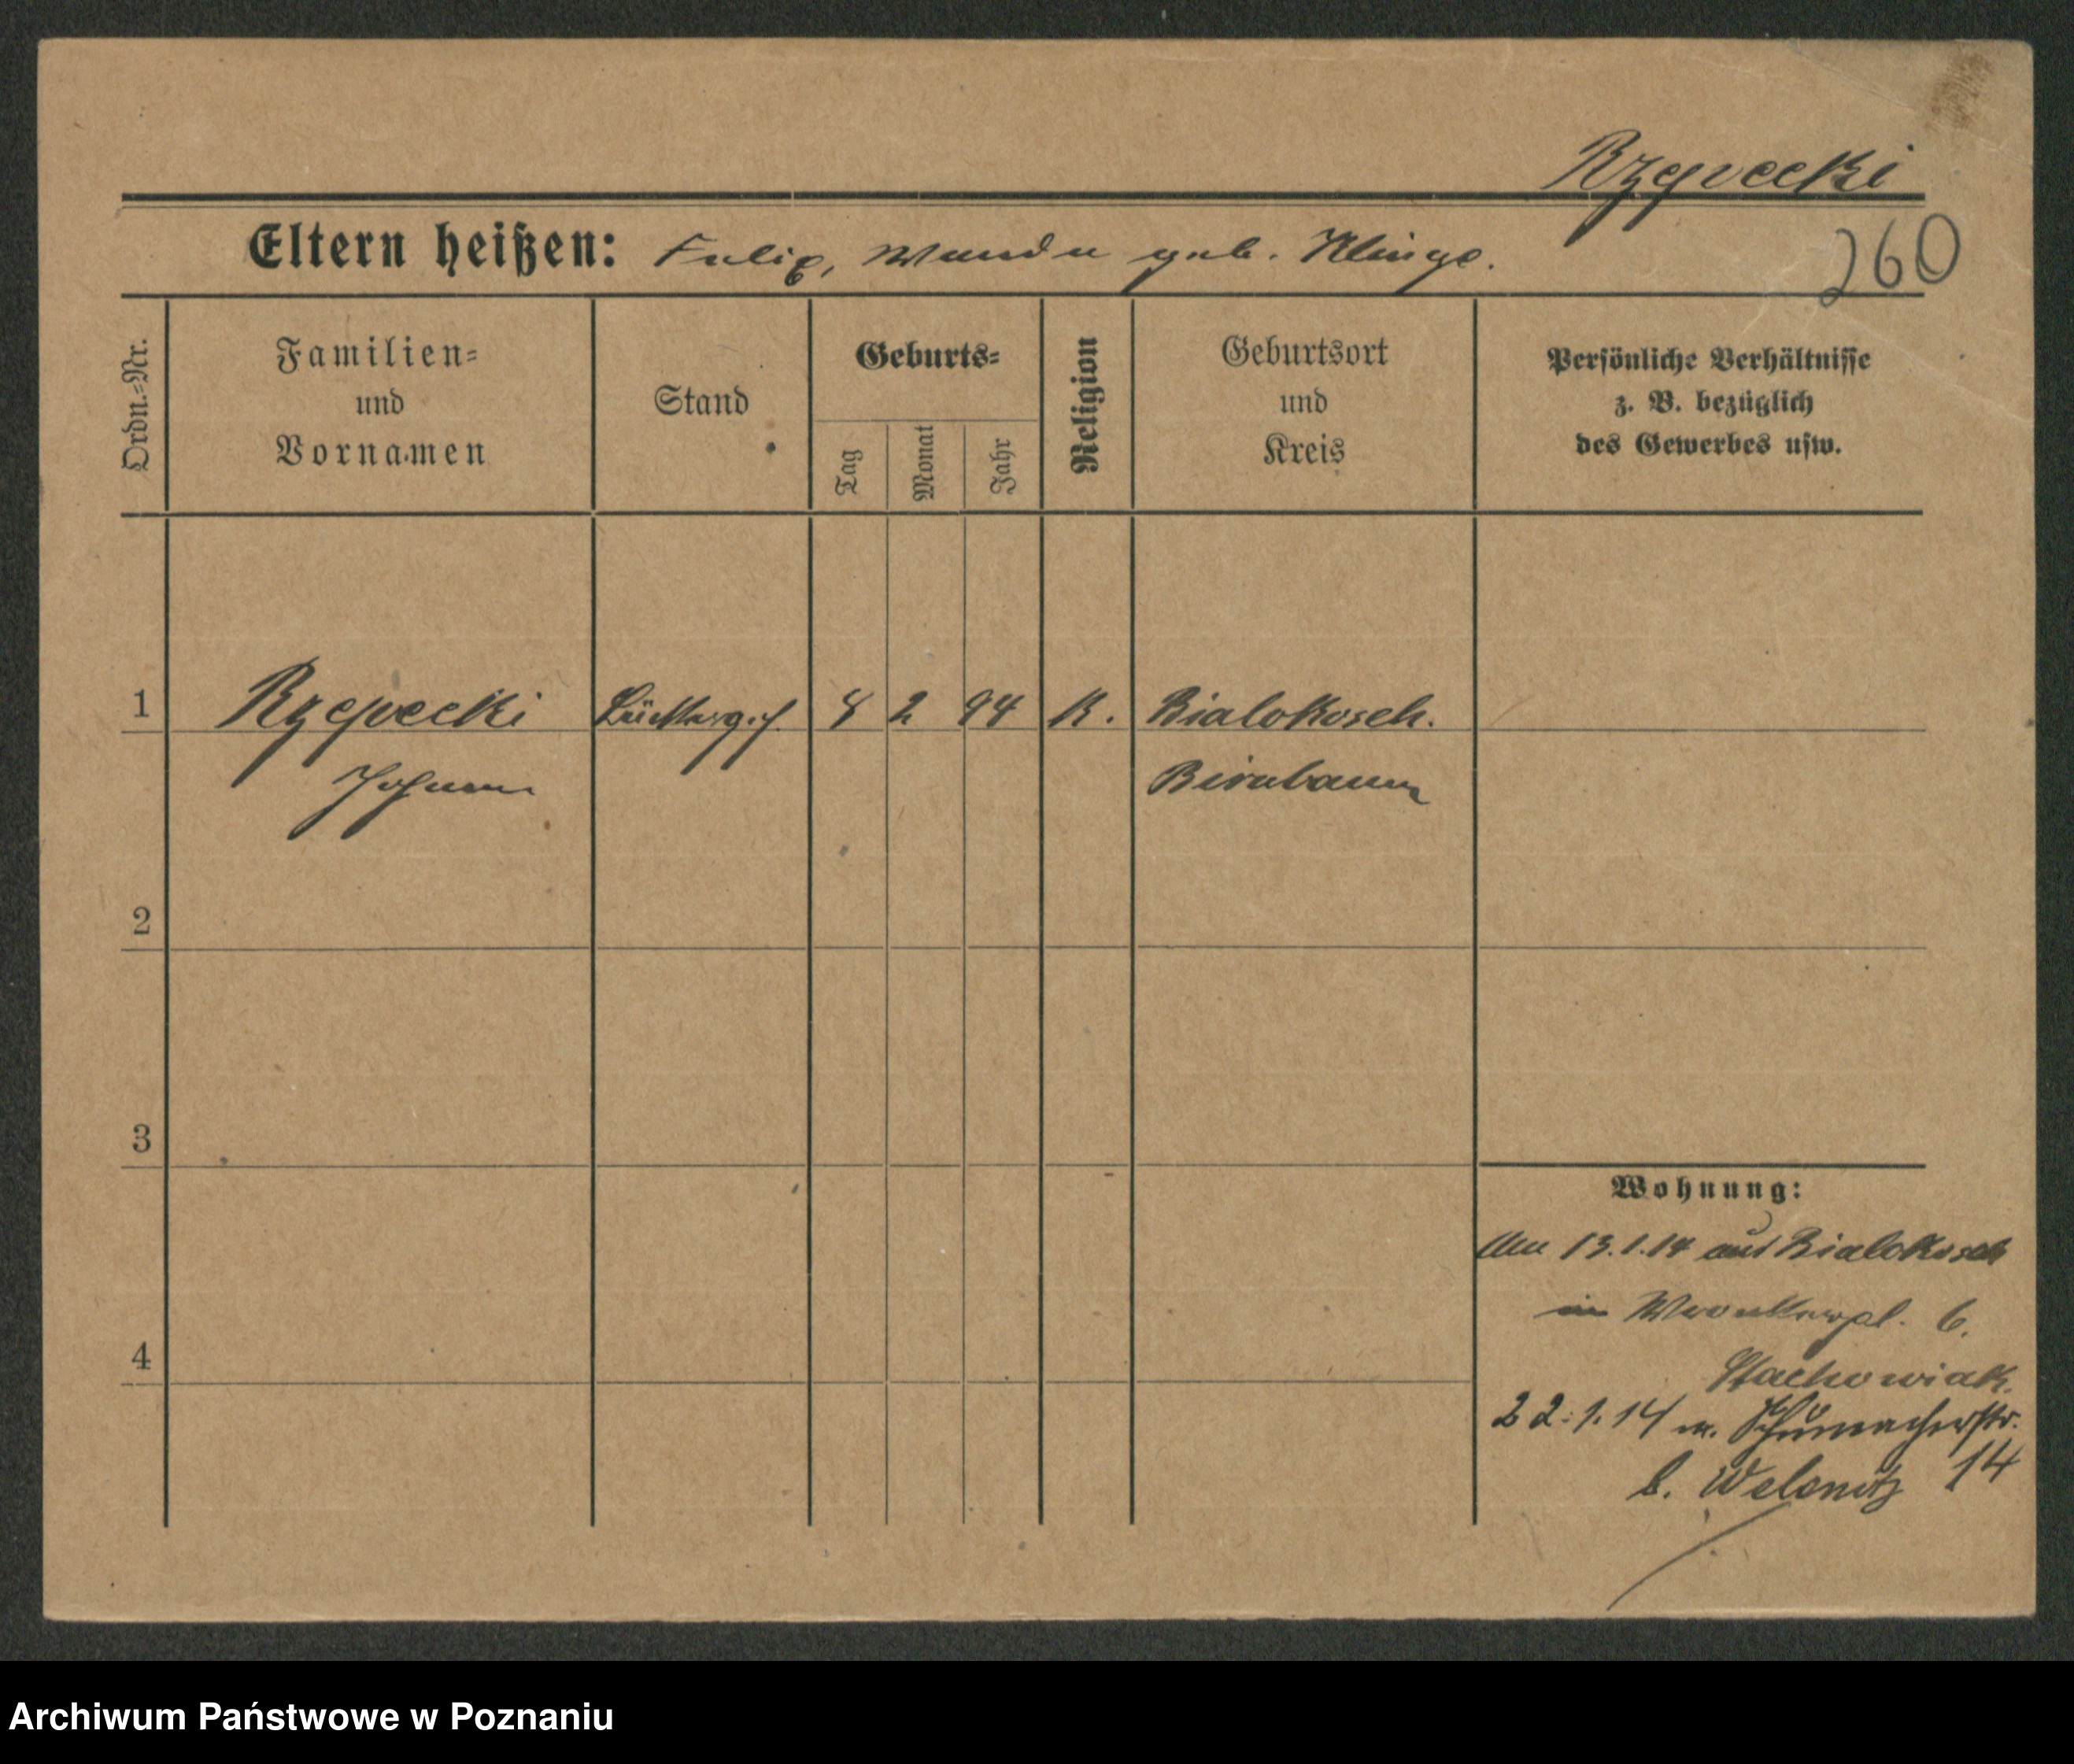 Rzepecki
Eltern heißen: Felix, Wanda geb. Klinge.
260
Ordn.=Nr.
Familien=
und
Vornamen
Stand
Geburts=
Tag
Monat
Jahr
Religion
Geburtsort
und
Kreis
Persönliche Verhältnisse
z. B. bezüglich
des Gewerbes usw.
1 Rzepecki Bäckergs. 8 2 94 K. Bialokosch.
Johann Birnbaum
2
3
Wohnung:
Am 13.1.14 aus Bialokosch
in Wronkerpl. 6.
4
Stachowiak.
22.1.14 n. Schumacherstr.
b. 14
Archiwum Państwowe w Poznaniu